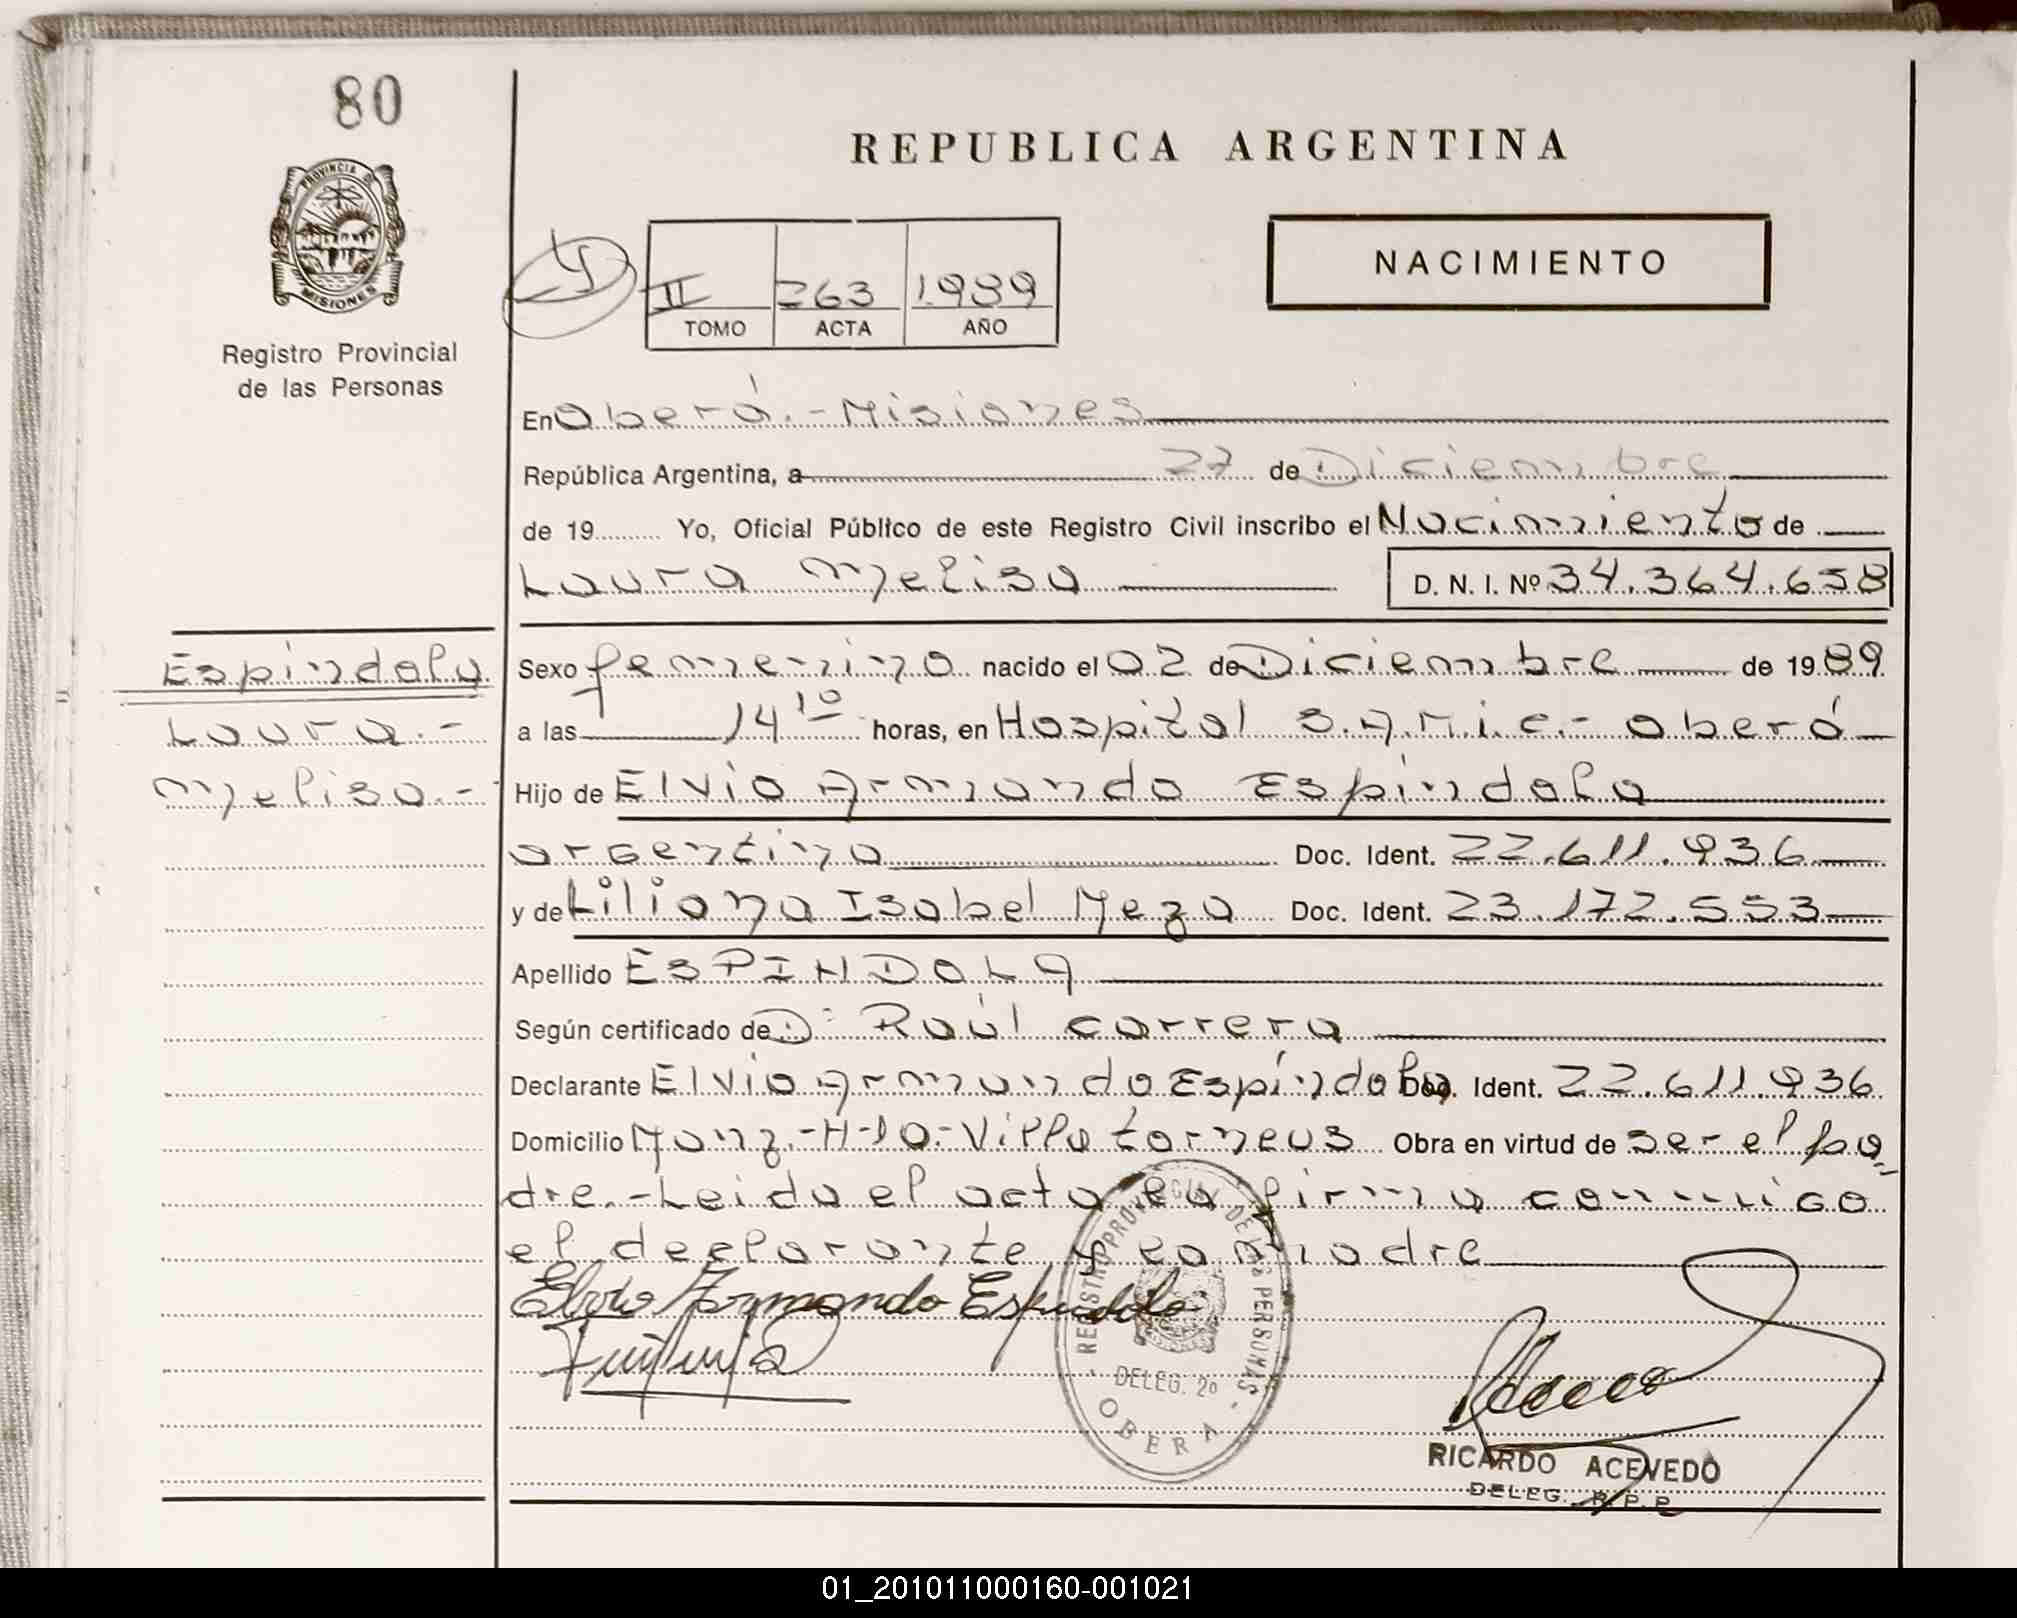 80
PROVINCIA DE
MISIONES
Registro Provincial
de las Personas
REPUBLICA ARGENTINA
NACIMIENTO
II 263 1989
TOMO ACTA AÑO
En Oberá.-Misiones
República Argentina, a 27 de Diciembre
de 19 Yo, Oficial Público de este Registro Civil inscribo el Nacimiento de
Laura Melisa D. N. I. Nº 34.364.658
Espíndola
Laura.-
Melisa.-
Sexo femenino nacido el 02 de Diciembre de 1989
a las 14 10 horas, en Hospital S.A.M.i.c.- Oberá
Hijo de Elvio Armando Espíndola
argentino Doc. Ident. 22.611.936
y de Liliana Isabel Meza Doc. Ident. 23.172.553
Apellido ESPINDOLA
Según certificado de D: Raúl Carrera
Declarante Elvio Armando Espíndola Doc. Ident. 22.611.936
Domicilio Manz.-H-10-Villa torneus Obra en virtud de ser el pa
dre.-Leida el acta la firma conmigo
el declarante y la madre
Elvio Armando Espindola
REGISTRO PROVINCIAL DE LAS PERSONAS
DELEG. 2º
OBERA
RICARDO ACEVEDO
DELEG. R.P.P.
01_201011000160-001021